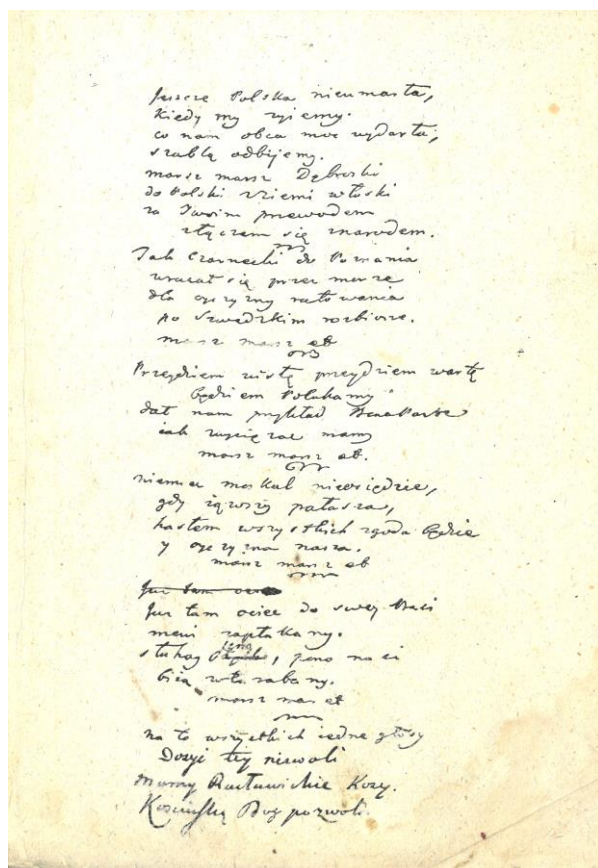 Jeszcze Polska nieumarła,
kiedy my żyiemy.
co nam obca moc wydarła,
szablą odbijemy.
marsz marsz Dąbroski
do Polski z ziemi włoski
za Twoim przewodem
złączem się znarodem.
Jak Czarnecki do Poznania
wracał się przez morze
dla oyczyzny ratowania
po szwedzkim rozbiorze.
marsz marsz et
Przeydziem wisłę przeydziem wartę
będziem Polakamy
dał nam przykład Bonaparte
iak zwyciężać mamy
marsz marsz et.
niemiec moskal nieosiędzie,
gdy iąwszy pałasza,
hasłem wszystkich zgoda będzie
y oyczyzna nasza.
marsz marsz et
Już tam
Już tam ociec do swey Basi
mówi zapłakany.
słuchay ieno, pono nasi
biią w tarabany.
marsz mar et
na to wszystkich iedne głosy
Dosyć tey niewoli
mamy Racławickie Kosy.
Kosciuszkę Bog pozwoli.